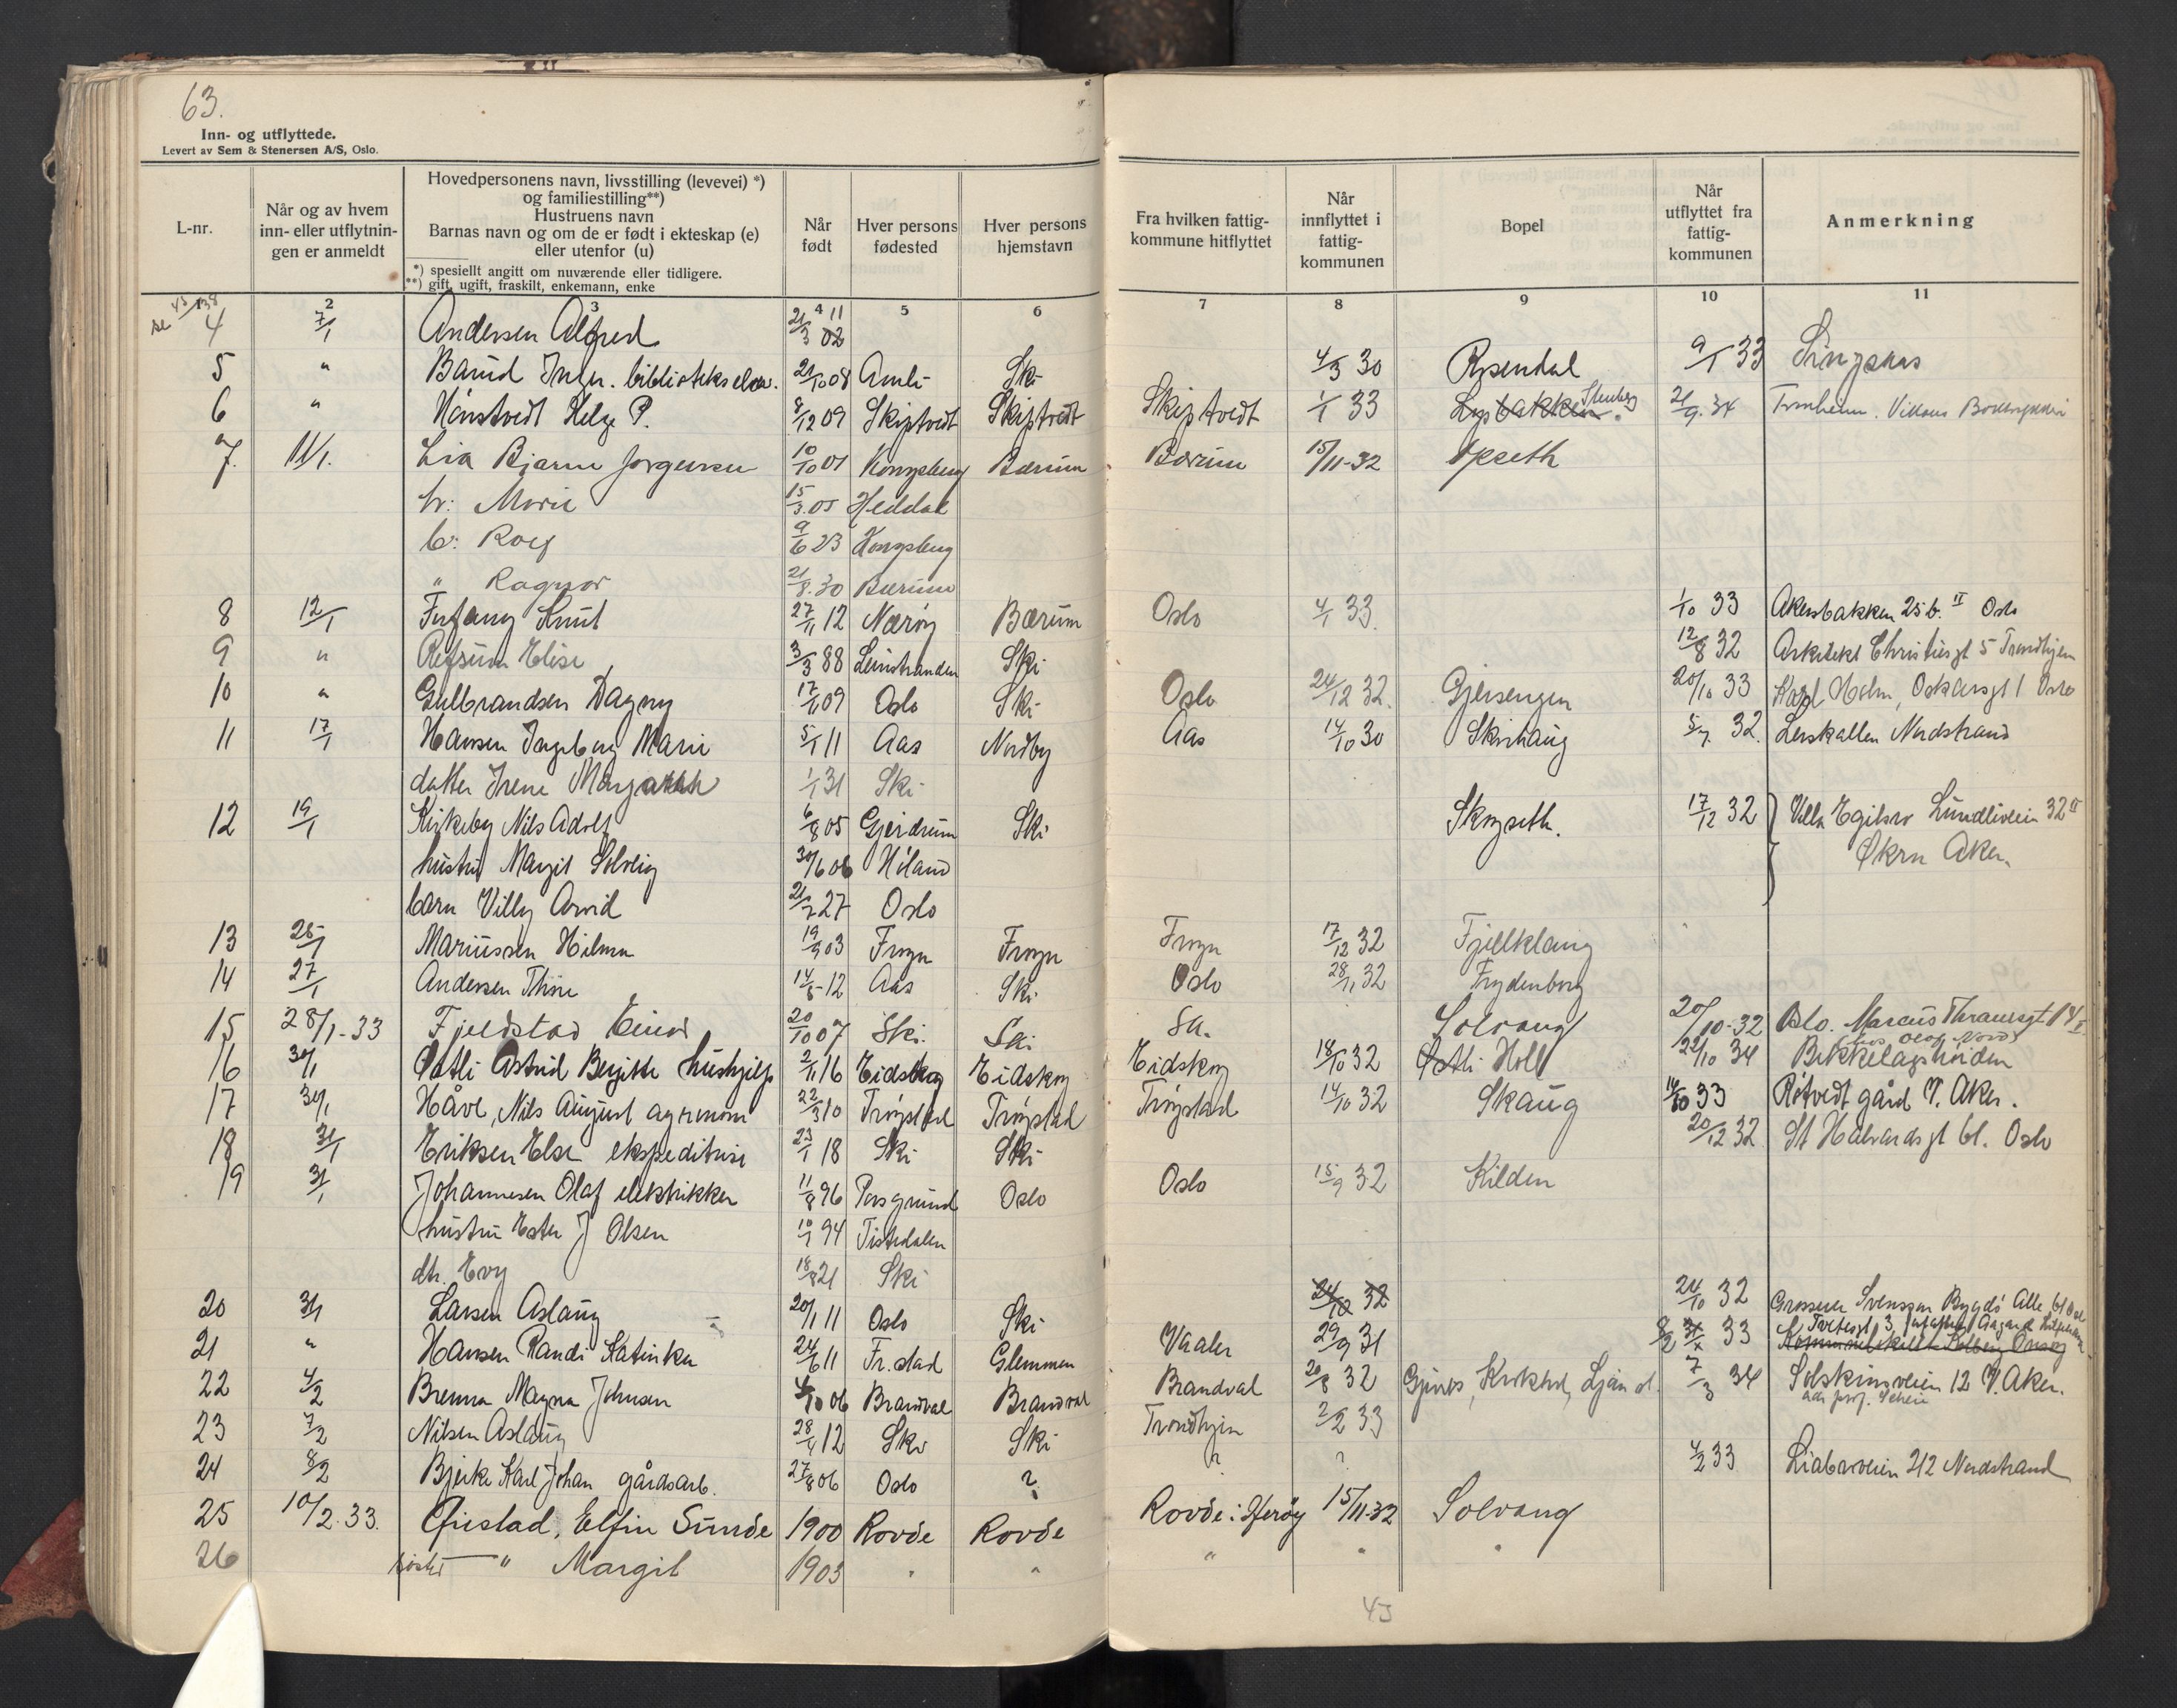 63.
Inn- og utflyttede.
Levert av Sem & Stenersen A/S, Oslo.
L-nr.
Når og av hvem inn- eller utflytnin-gen er anmeldt
Hovedpersonens navn, livsstilling (levevei) *)
og familiestilling**)
Hustruens navn
Barnas navn og om de er født i ekteskap (e)
eller utenfor (u)
*) spesiellt angitt om nuværende eller tidligere.
**) gift, ugift, fraskilt, enkemann, enke
Når født
Hver persons fødested
Hver persons hjemstavn
Fra hvilken fattig-kommune hitflyttet
Når innflyttet i fattig-kommunen
Bopel
Når utflyttet fra fattig-kommunen
Anmerkning
1 2 3 4 5 6 7 8 9 10 11
4 7/1 Andersen Alfred 21/3 02 11
5 " bibliotekselev. 21/10 08 Amli Ski 4/3 30 Rosendal 9/1 33
6 " Helge P. 8/12 09 Skiptvedt Skiptvedt Skiptvedt 1/1 33 Lysbakken Stenberg 21/9. 34 Tronheim.
7. 11/1. Lia Bjarne Jørgensen 10/10 01 Kongsberg Bærum Bærum 15/11-32 Opseth
h: Marie 15/3.05 Heddal
b: Rolf 9/6 23 Kongsberg
" Ragnar 21/8.30 Bærum
8 12/1 Knut 27/11 12 Nærøy Bærum Oslo 4/1 33. 1/10 33 Akersbakken 25 b. II Oslo
9 " Refsum Elise 3/3 88 Leinstranden Ski 12/8 32 Arkitekt Christiesgt 5 Trondhjem
10 " Gulbrandsen Dagny 17/11 09 Oslo Ski Oslo 24/12 32. Gjersengen 20/10 33 Karl Holm, Oskarsgt 1 Oslo
11 17/1 Hansen Ingeborg Marie 5/1 11 Aas Nordby Aas 14/10 30 Skorhaug 5/7. 32. Lerskallen Nordstrand
datter Irene Margareth 1/1 31 Ski
12 19/1 Kirkeby Nils Adolf 6/8 05 Gjerdrum Ski Skogseth. 17/12 32 } Villa Egilsro Lundliveien 32 II
hustru Margit Solveig 30/6 06 Høland Økern Aker.
barn Villy Arvid 21/7 27 Oslo
13 25/1 Mariussen Hilma 19/9 03 Frogn Frogn Frogn 17/12 32 Fjellklang
14 27/1 Andersen 14/8-12 Aas Ski Oslo 28/11 32 Frydenborg
15 28/1-33 Fjeldstad Einar 20/10 07 Ski. Ski Ski. Solvang 20/10-32 Oslo. Marcus Thranesgt 14 II
16 30/1 Østli Astrid Bergitte hushjelp 2/11 16 Eidskog Eidskog Eidskog 18/10 32 Østli Holt 22/10 34 Bekkelagshøiden
17 30/1 Håve, Nils August agronom 22/3 10 Trøgstad Trøgstad Trøgstad 14/10 32 Skaug 14/10 33 Røtvedt gård V. Aker.
18 31/1 Eriksen Else ekspeditrise 23/1 18 Ski Ski 20/12 32. St Halvardsgt 61. Oslo
19 31/1 Johannesen Olaf elektrikker 11/8 96 Porsgrund Oslo Oslo 15/9 32 Kilden
hustru Ester J Olsen 10/1 94 Tistedalen
dtr. Evy 18/8 21 Ski
20 31/1 Larsen Aslaug 20/1 11 Oslo Ski 24/10 32 24/10 32 Grosserer Svensson Bygdø Alle 61 Oslo
21 " Hansen Randi Katinka 24/6 11 Fr.stad Glemmen Vaaler 29/9 31 8/2 33
22 4/2 Brenna Magna Johnsen 4/10 06 Brandval Brandval Brandval 20/8 32 Ljan st. 7/3 34 Solskinsveien 12 V. Aker.
adr. prof. Schei
23 7/2 Nilsen Aslaug 28/4 12 Ski Ski Trondhjem 2/2 33
24 8/2 Bjerke Karl Johan gårdsarb. 27/8 06 Oslo ? ? ? 4/2 33 Liabroveien 212 Nordstrand
25 10/2.33. Elfin Sunde 1900 Rovde Rovde Rovde 15/11-32 Solvang
26 søster — " Margit 1903 " " " " "
43